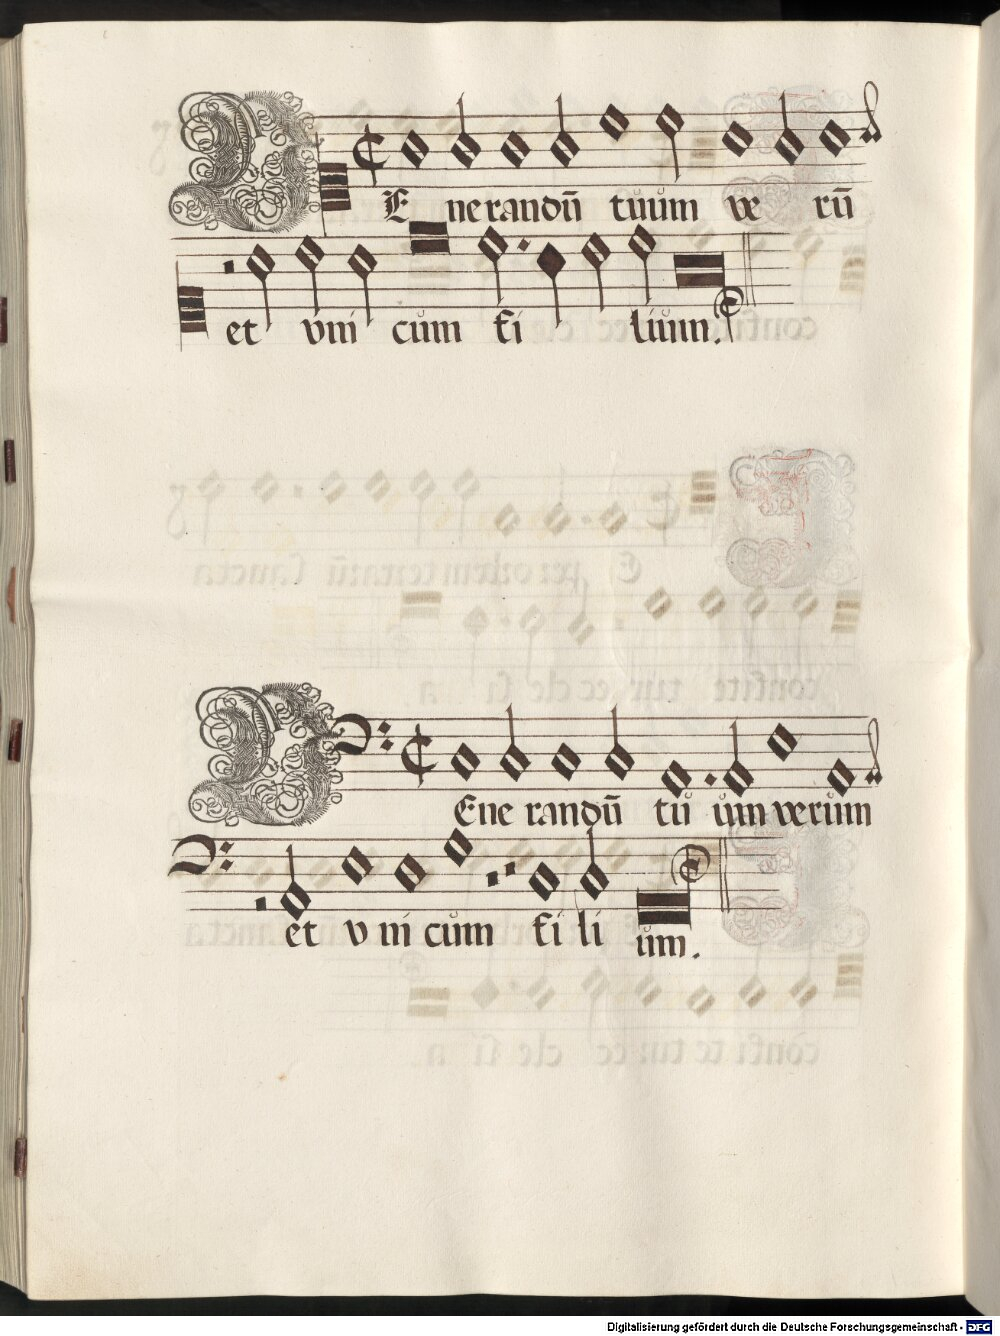 Enerandū tuum ve rū
et vni cum fi lium.
Ene randū tu um verum
et v ni cum fi li um.
Digitalisierung gefördert durch die Deutsche Forschungsgemeinschaft - DFG